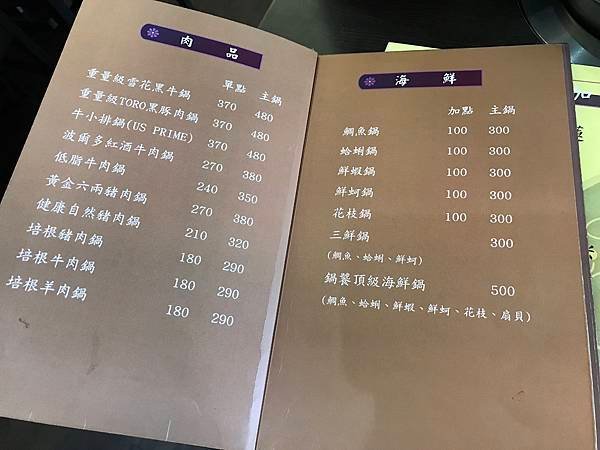 肉品
單點 主鍋
重量級雪花黑牛鍋 370 480
重量級TORO黑豚肉鍋 370 480
牛小排鍋(US PRIME) 370 480
波爾多紅酒牛肉鍋 270 380
低脂牛肉鍋 240 350
黃金六兩豬肉鍋 270 380
健康自然豬肉鍋 210 320
培根豬肉鍋 180 290
培根牛肉鍋 180 290
培根羊肉鍋 180 290
海鮮
加點 主鍋
鯛魚鍋 100 300
蛤蜊鍋 100 300
鮮蝦鍋 100 300
鮮蚵鍋 100 300
花枝鍋 100 300
三鮮鍋 300
(鯛魚、蛤蜊、鮮蚵)
鍋饕頂級海鮮鍋 500
(鯛魚、蛤蜊、鮮蝦、鮮蚵、花枝、扇貝)